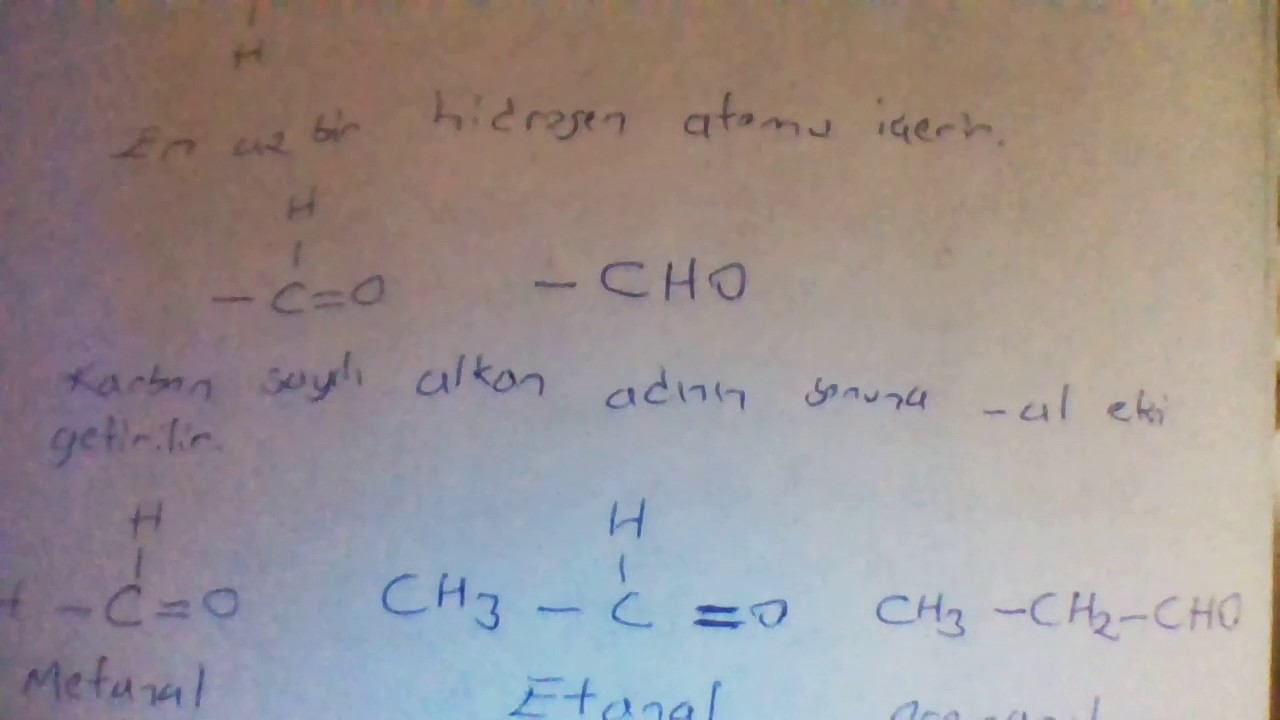 H
En az bir hidrojen atomu içerir.
H
– C = O – CHO
Karbon sayılı alkan adının sonuna -al eki
getirilir.
H H
– C = O CH3 – C = O CH3 – CH2 – CHO
Metanal Etanal